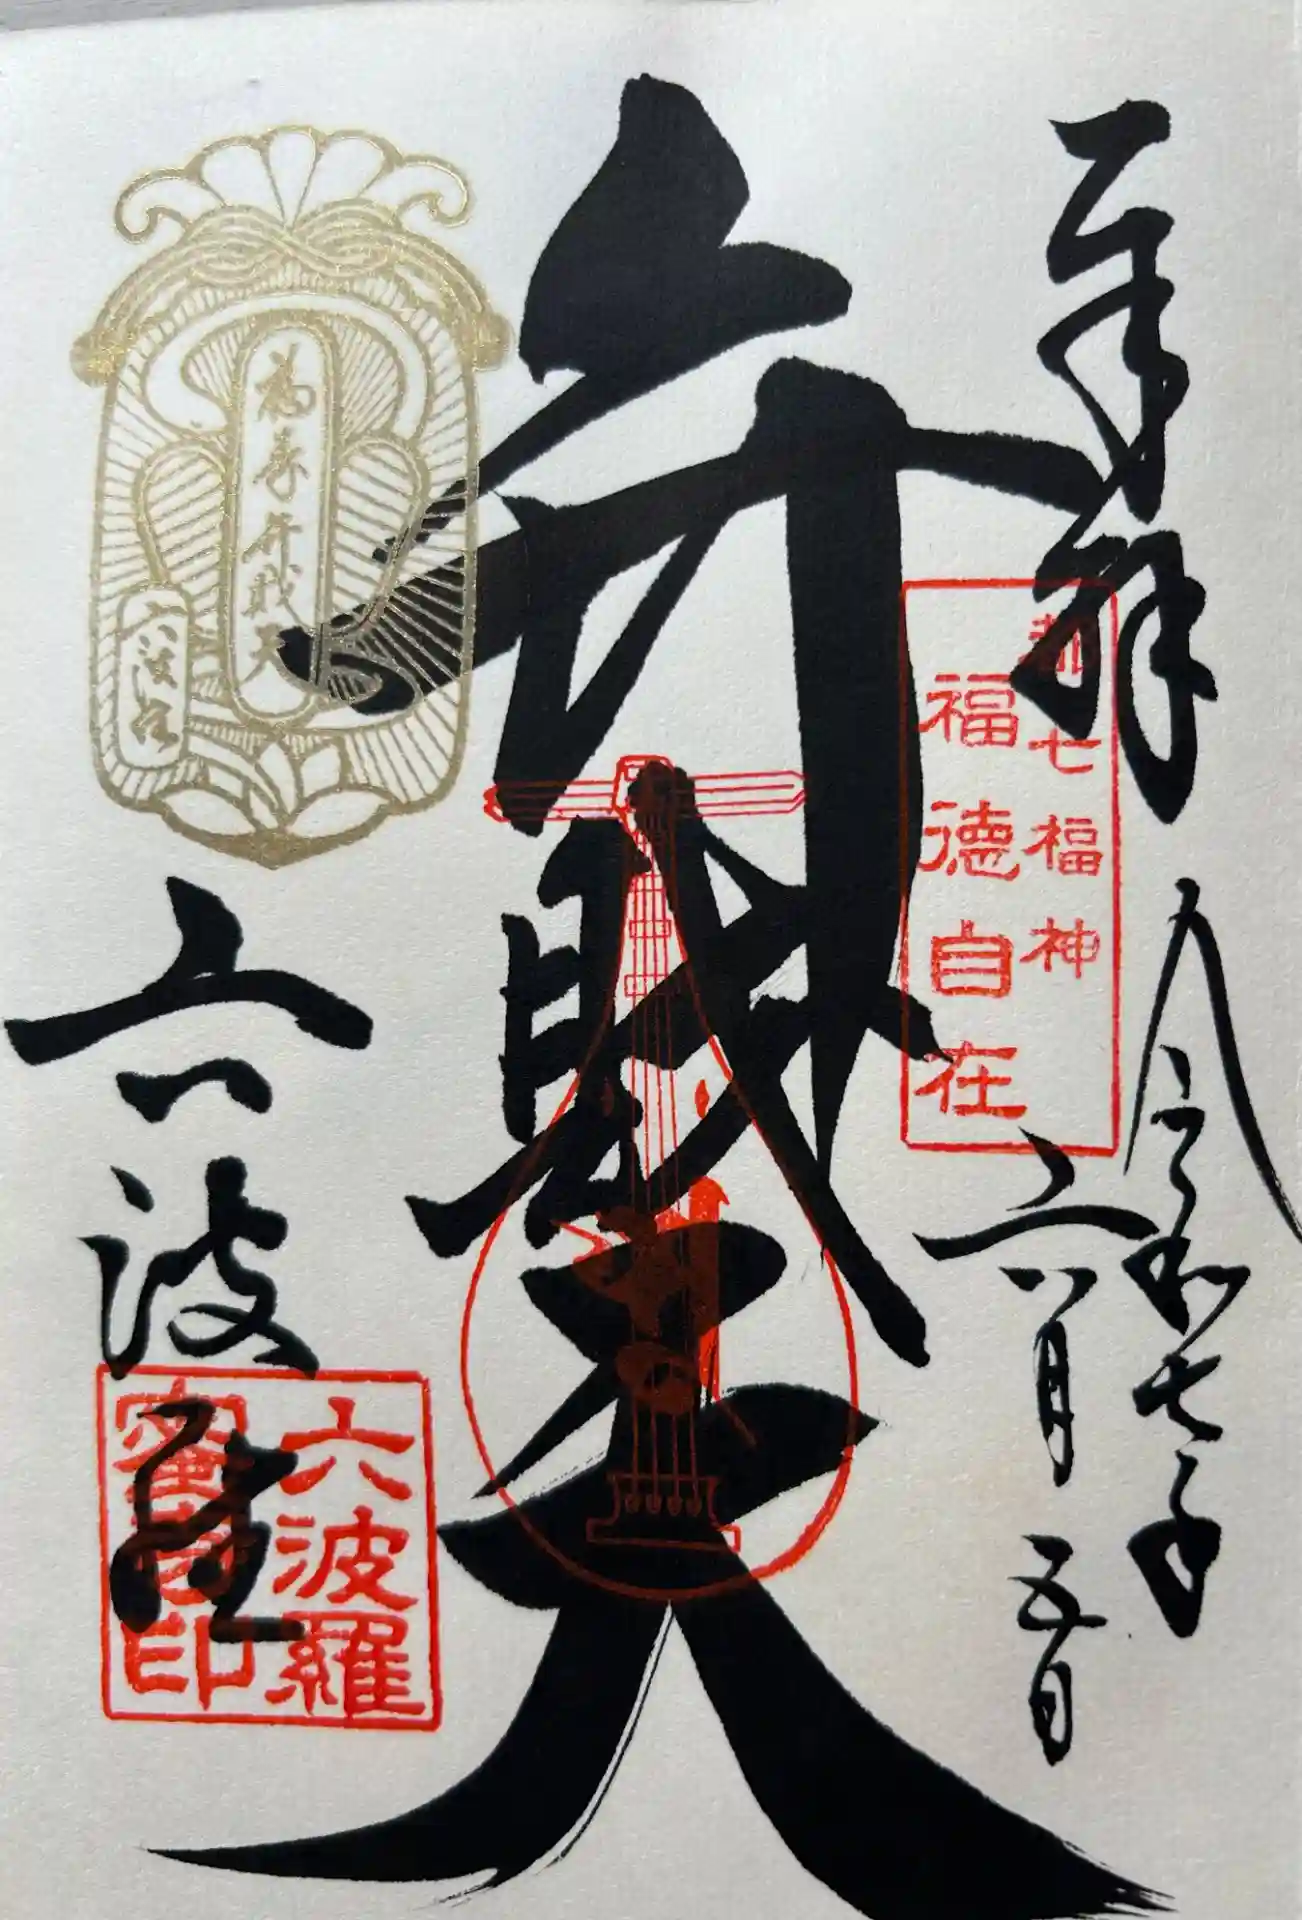 奉拝
令和七年
六月五日
都七福神
福德自在
弁財天
福寿弁財天
六波羅
六波羅
六波羅
蜜寺印